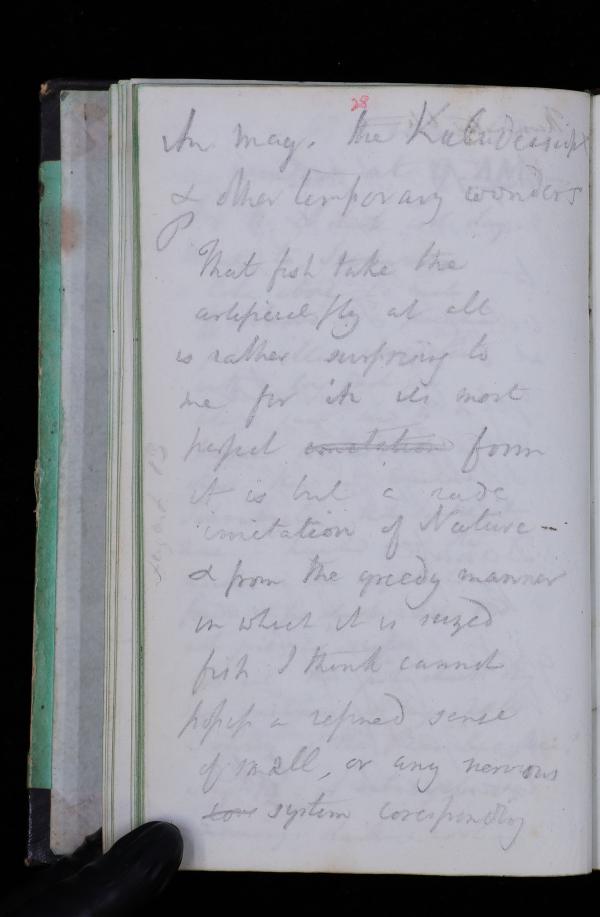 28
In mag. the Kaleidescope
& other temporary wonders
P
That fish take the
artificial fly at all
is rather surprising to
me for in its most
perfect imitation form
it is but a rude
imitation of Nature -
& from the greedy manner
in which it is seized
fish I think cannot
posess a refined sense
of smell, or any nervous
system coresponding